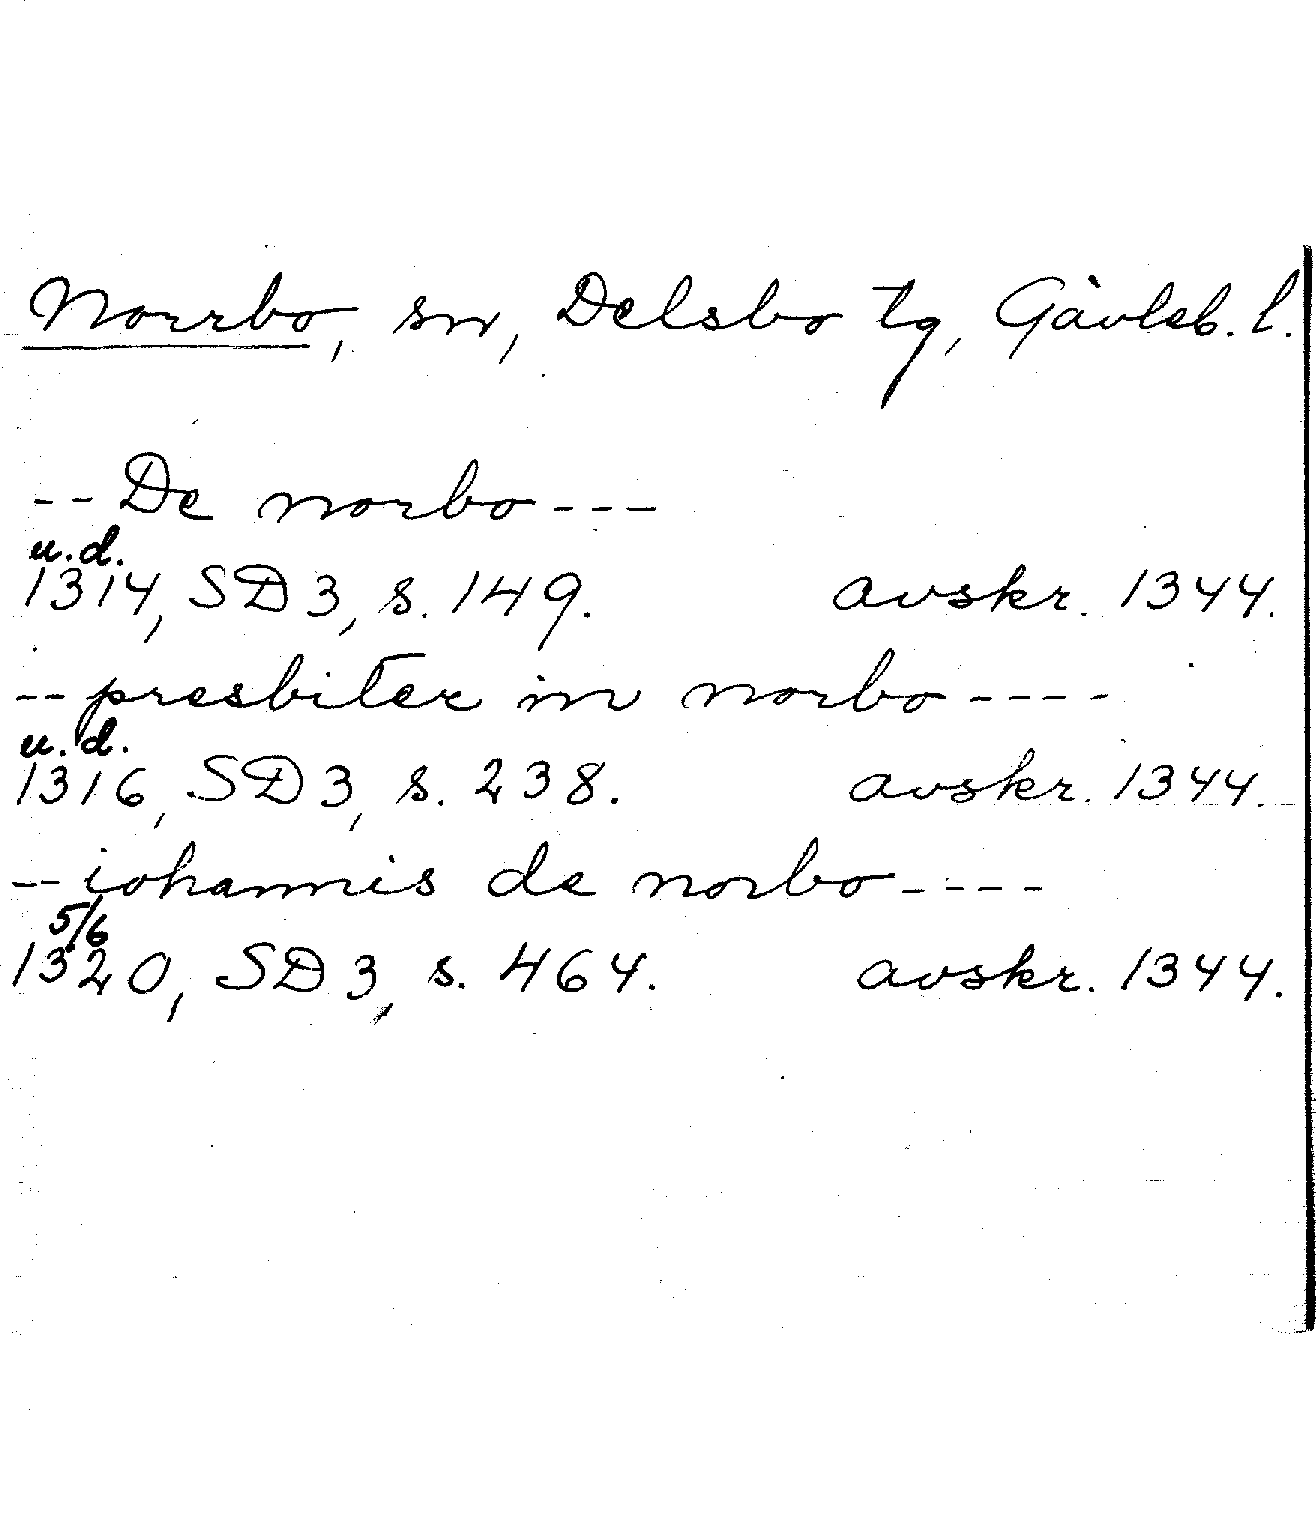 Norrbo, sn, Delsbo tg, Gävleb. l.
-- De norbo ---
u.d.
1314, SD 3, s. 149. avskr. 1344.
-- presbiter in norbo ----
u.d.
1316, SD 3, s. 238. avskr. 1344.
-- iohannis de norbo ----
5/6
1320, SD 3, s. 464. avskr. 1344.